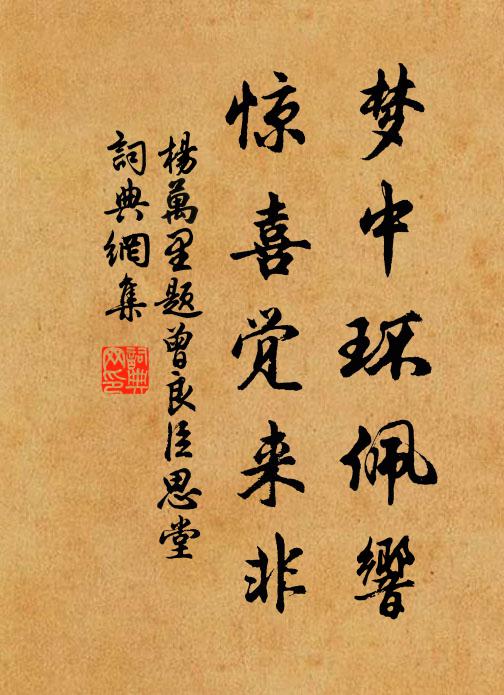 梦中环佩響
惊喜觉来非
楊萬里题曾良臣思堂
詞典網集
詞典网印